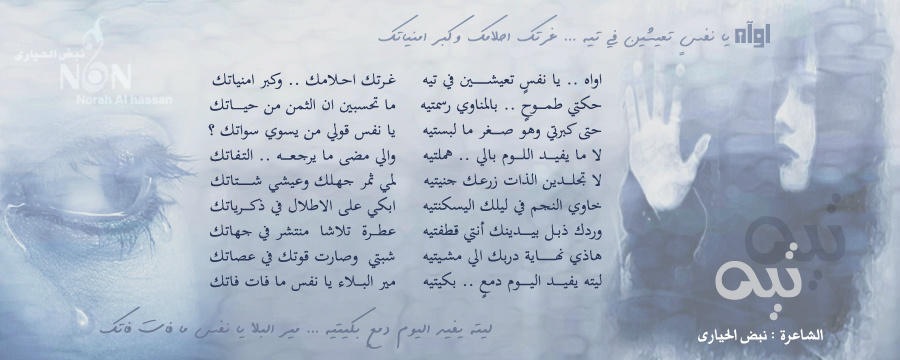 اوآه يا نفسٍ تعيشين في تيه ... غرتك احلامك وكبر امنياتك
نبض الحيارى
NON
Norah Al hassan
اواه .. يا نفسٍ تعيشـــين في تيه غرتك احـلامك .. وكبر امنياتك
حكتي طمـوحٍ .. بالمناوي رسمتيه ما تحسبين ان الثمن من حيـــاتك
حتى كبرتي وهو صـغر ما لبستيه يا نفس قولي من يسوي سواتك ؟
لا ما يفيـد اللـوم بالي .. هملتيه والي مضى ما يرجعـه .. التفاتك
لا تجلـدين الذات زرعك جنيتيه لمي ثمر جهلك وعيشي شــتاتك
خاوي النجم في ليلك اليسكنتيه ابكي على الاطلال في ذكـرياتك
وردك ذبـل بيـدينك أنتي قطفتيه عطـرة تلاشا منتشر في جهاتك
هاذي نهـــاية دربك الي مشيتيه شبتي وصارت قوتك في عصاتك
ليته يفيـد اليـوم دمعٍ .. بكيتيه مير البـلاء يا نفس ما فات فاتك
تيه
تيه
ليته يفيد اليوم دمع بكيتيه ... مير البلا يا نفس ما فات فاتك
الشاعرة : نبض الحيارى